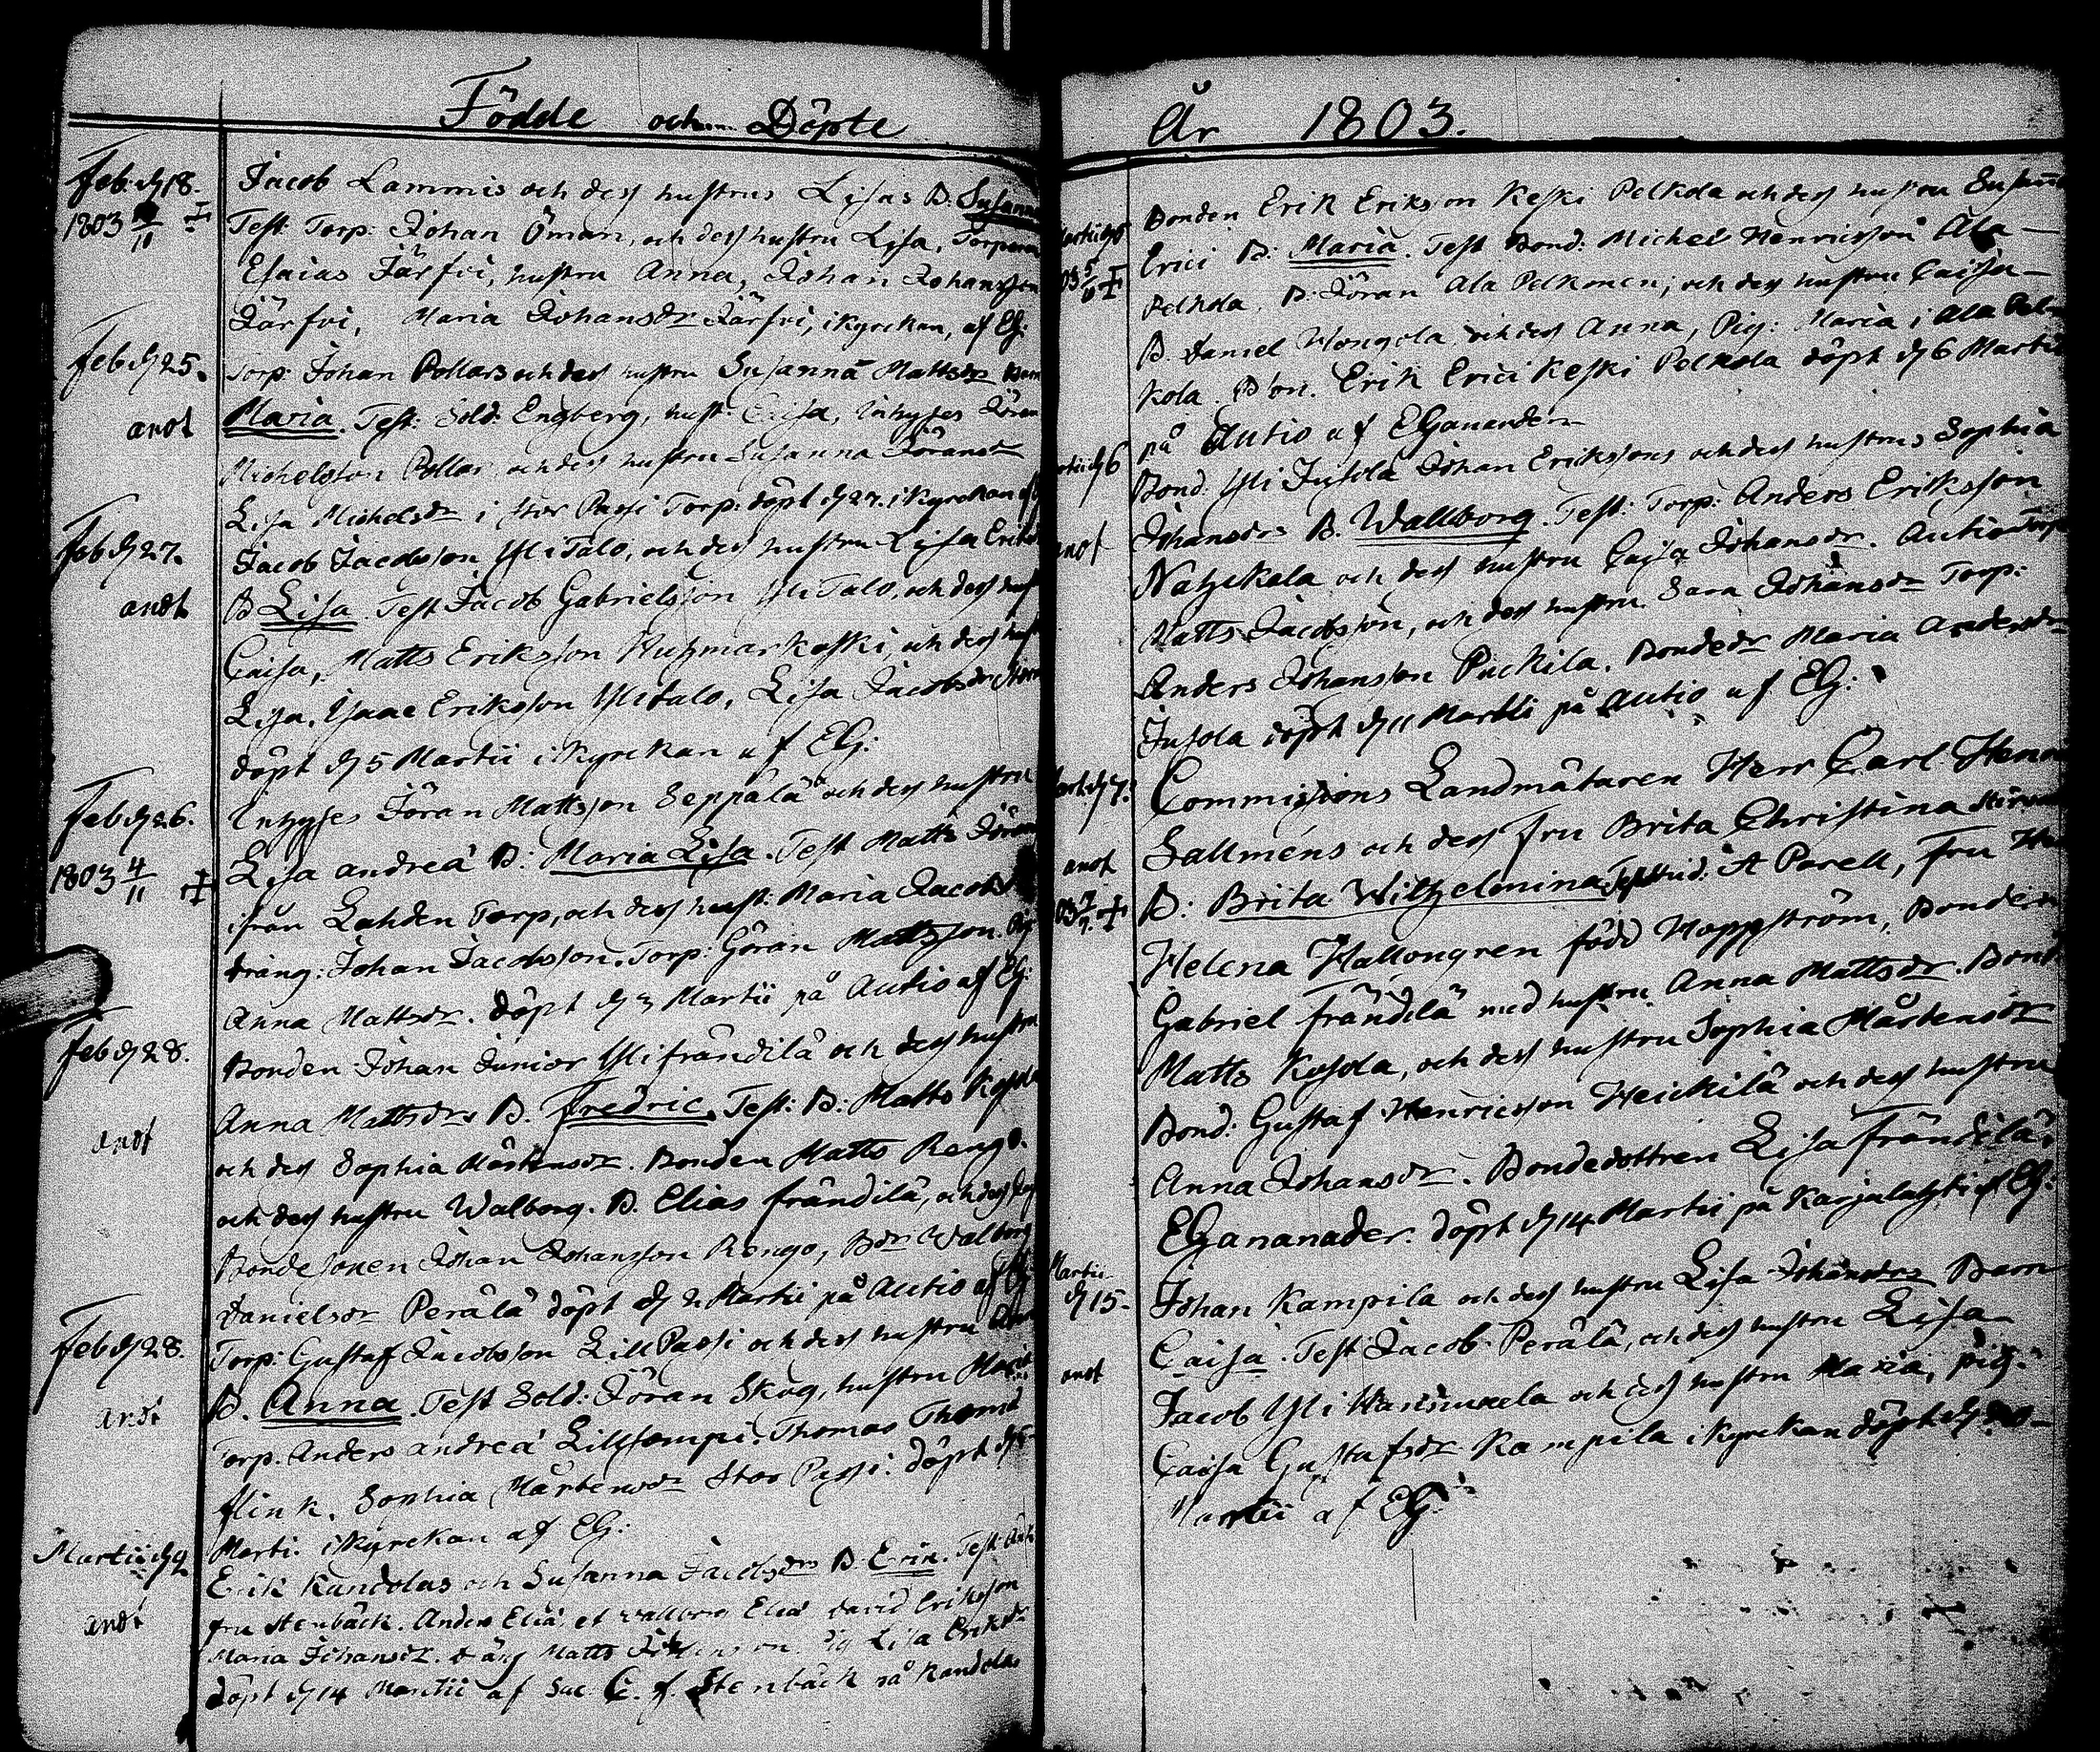 Födde och Döpte
Feb. d 18.
1803 /11 +
Jacob Lammis och dess hustrus Lisas B. Susanna
Test: Torp: Johan Öman, och dess hustru Lisa, Torparen
Esaias Järfvi, hustru Anna, Johan Johansson
Järfvi, Maria Johansdr Järfvi, i kyrckan, af EG:
Feb d 25.
anot
Torp: Johan Pollars och dess hustru Susanna Mattsdr Barn
Maria. Test: Sold: Engberg, hust: Caisa, Inhyses Jöran
Michelsson Pollar och dess hustru Susanna Jöransdr
Lisa Michelsdr i Stor Passi Torp: döpt d 27. i kyrckan af
Feb d 27.
anot
Jacob Jacobsson Yli Talo, och dess hustru Lisa Eriksdr
B Lisa. Test Jacob Gabrielsson Yli Talo, och dess hust
Caisa, Matts Eriksson Ruhmarkoski, och dess hust
Lisa, Isaac Eriksson Ylitalo, Lisa Jacobsdr
döpt d 5 Martii i kyrckan af EG:
Feb d 26.
1803 4/11 +
Inhyses Jöran Mattsson Seppälä och dess hustru
Lisa andreæ B: Maria Lisa. Test Matts Jöran
ifrån Lahden Torp, och dess hust: Maria Jacobs
dräng: Johan Jacobsson. Torp: Göran Mattsson. Pig
Anna Mattsdr. döpt d 3 Martii på Autio af EG:
Feb d 28.
anot
Bonden Johan Junior Yli frändilä och dess hustru
Anna Mattsdrs B. Fredric. Test: B: Matts Kosola
och dess Sophia Mårtensdr. Bonden Matts Rengo.
och dess hustru Walborg. B. Elias frändilä, och dess
Bondesonen Johan Johansson Rengo, Bdr Walborg
Danielsdr Perälä döpt d 2 Martii på Autio af EG:
Feb d 28.
anot
Torp: Gustaf Jacobsson Lill Passi och dess hustru
B. Anna. Test Sold: Jöran Skog, hustru Maria
Torp. Anders andreæ Lillsompi. Thomas Thomæ
flink. Sophia Mårtensdr Stor Passi. döpt d
Marti. i kyrckan af EG:
Martii d 9
anot
Erik Kandolas och Susanna Jacobsdrs B. Erik. Test:
fru Stenbäck. Anders Eliæ et Wallborg Eliæ David Eriksson
Maria Johansdr. dräng Matts Pig Lisa Eriksdr
döpt d 14 Martii af Sac. C. f. Stenbäck på Kandolas
År 1803.
Martii d 5
03 5/10 +
Bonden Erik Eriksson Keski Pelkola och dess hustru Susanna
Erici B: Maria. Test Bond: Michel Henricsson Ala-
Pelkola, B: Jöran Ala Pelkonen, och dess hustru Caisa-
B. Daniel Hongola och dess Anna, Pig: Maria i Ala Pel-
kola. B son. Erik Erici Keski Pelkola döpt d 6 Martii
på Autio af EGanander
Martii d 6
anot
Bond: Yli Jusola Johan Erikssons och dess hustrus Sophia
Johansdrs B. Wallborg. Test: Torp: Anders Eriksson
och dess hustru Caisa Johansdr. Autio Torp
Matts Jacobsson, och dess hustru Sara Johansdr Torp:
Anders Johansson Puckila. Bondedr Maria Andersdr
Jusola döpt d 11 Martii på Autio af EG:
Mart. d 7.
anot
03 7/7 +
Commissions Landmätaren Herr Carl Henr
Sallméns och dess fru Brita Christina
B: Brita Wilhelmina Test: Stud: A Porell, Fru
Helena Hallongren född Hoppström, Bonden
Gabriel frändilä med hustru Anna Mattsdr. Bond
Matts Kosola, och dess hustru Sophia Mårtensdr
Bond: Gustaf Henricsson Heickilä och dess hustru
Anna Johansdr. Bondedottren Lisa Frändilä.
EGananader. döpt d 14 Martii på Karjalahti af EG:
Martii
d 15.
anot
Johan Kampila och dess hustru Lisa Johansdrs Barn
Caisa. Test Jacob Perälä, och dess hustru Lisa
Jacob Yli och dess hustru Maria, pig:
Caisa Gustafsdr Kampila i kyrckan döpt d
Martii af EG: